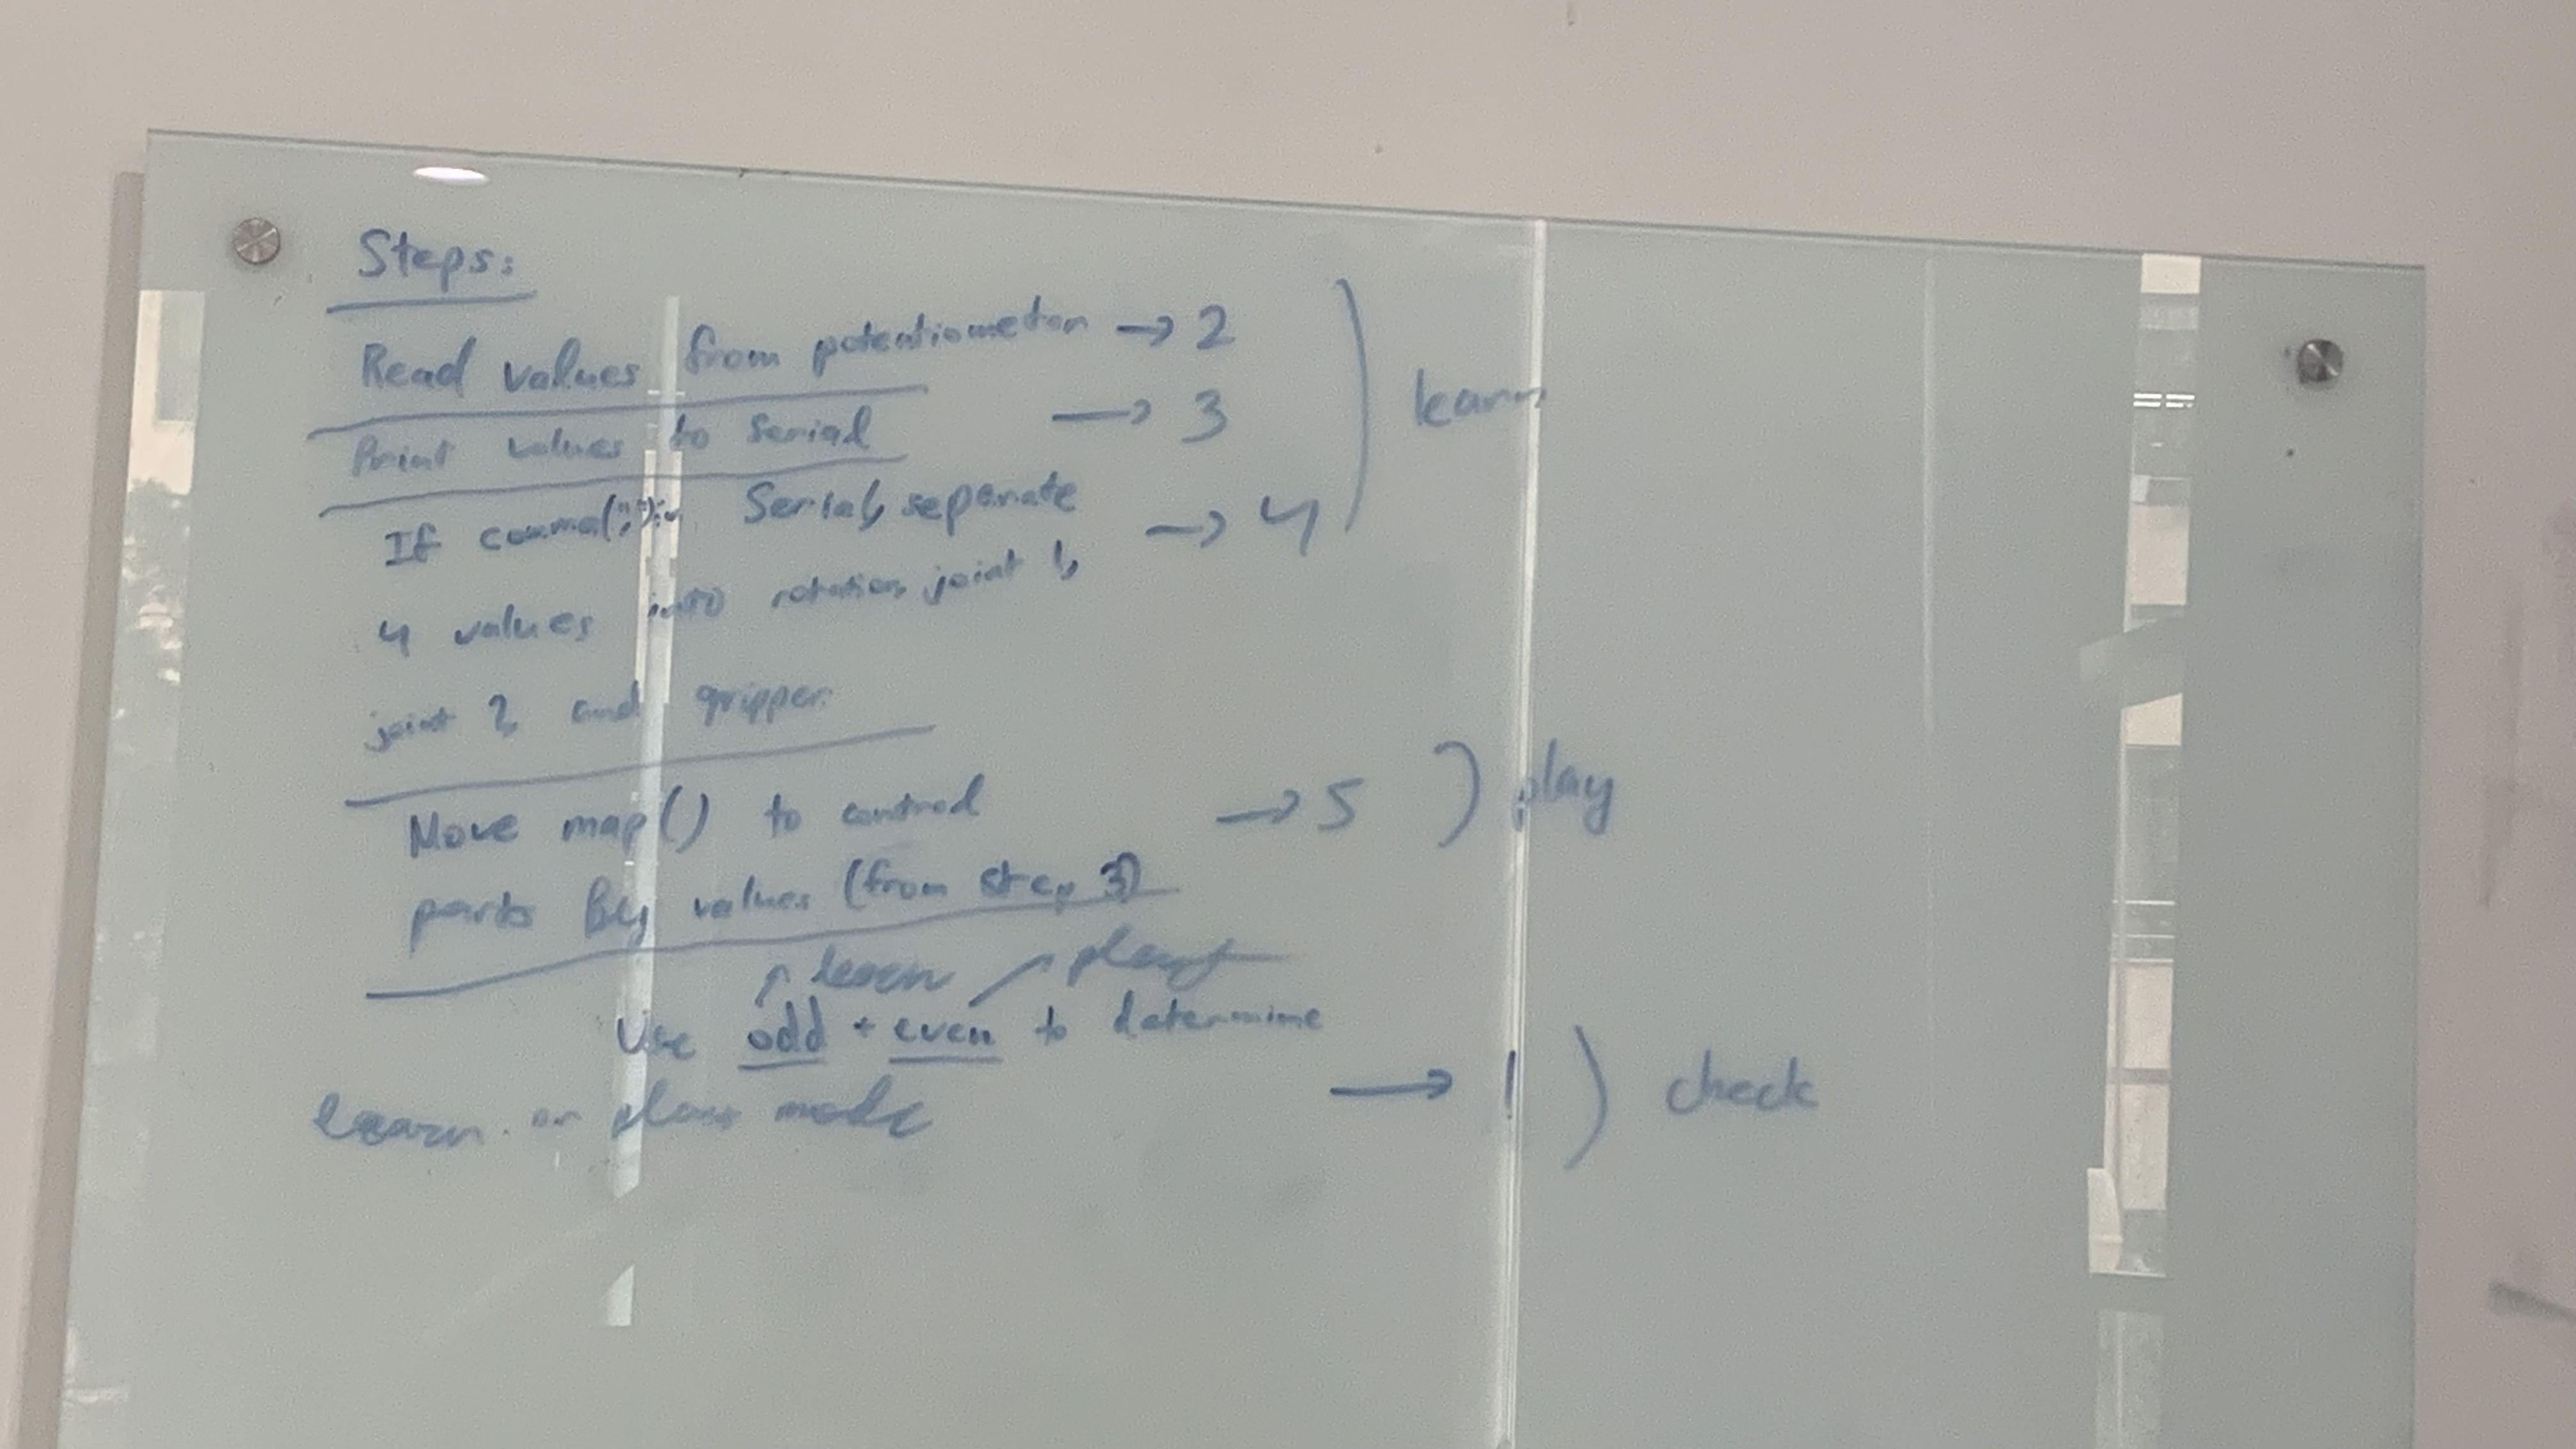 Steps:
Read values from potentiometer → 2
Print values to Serial → 3
learn
If comma(",") in Serial, separate → 4
4 values into rotation, joint 1,
joint 2, and gripper.
Move map() to control → 5 ) play
parts By values (from step 3)
learn play
Use odd + even to determine
→ 1 ) check
learn or play mode